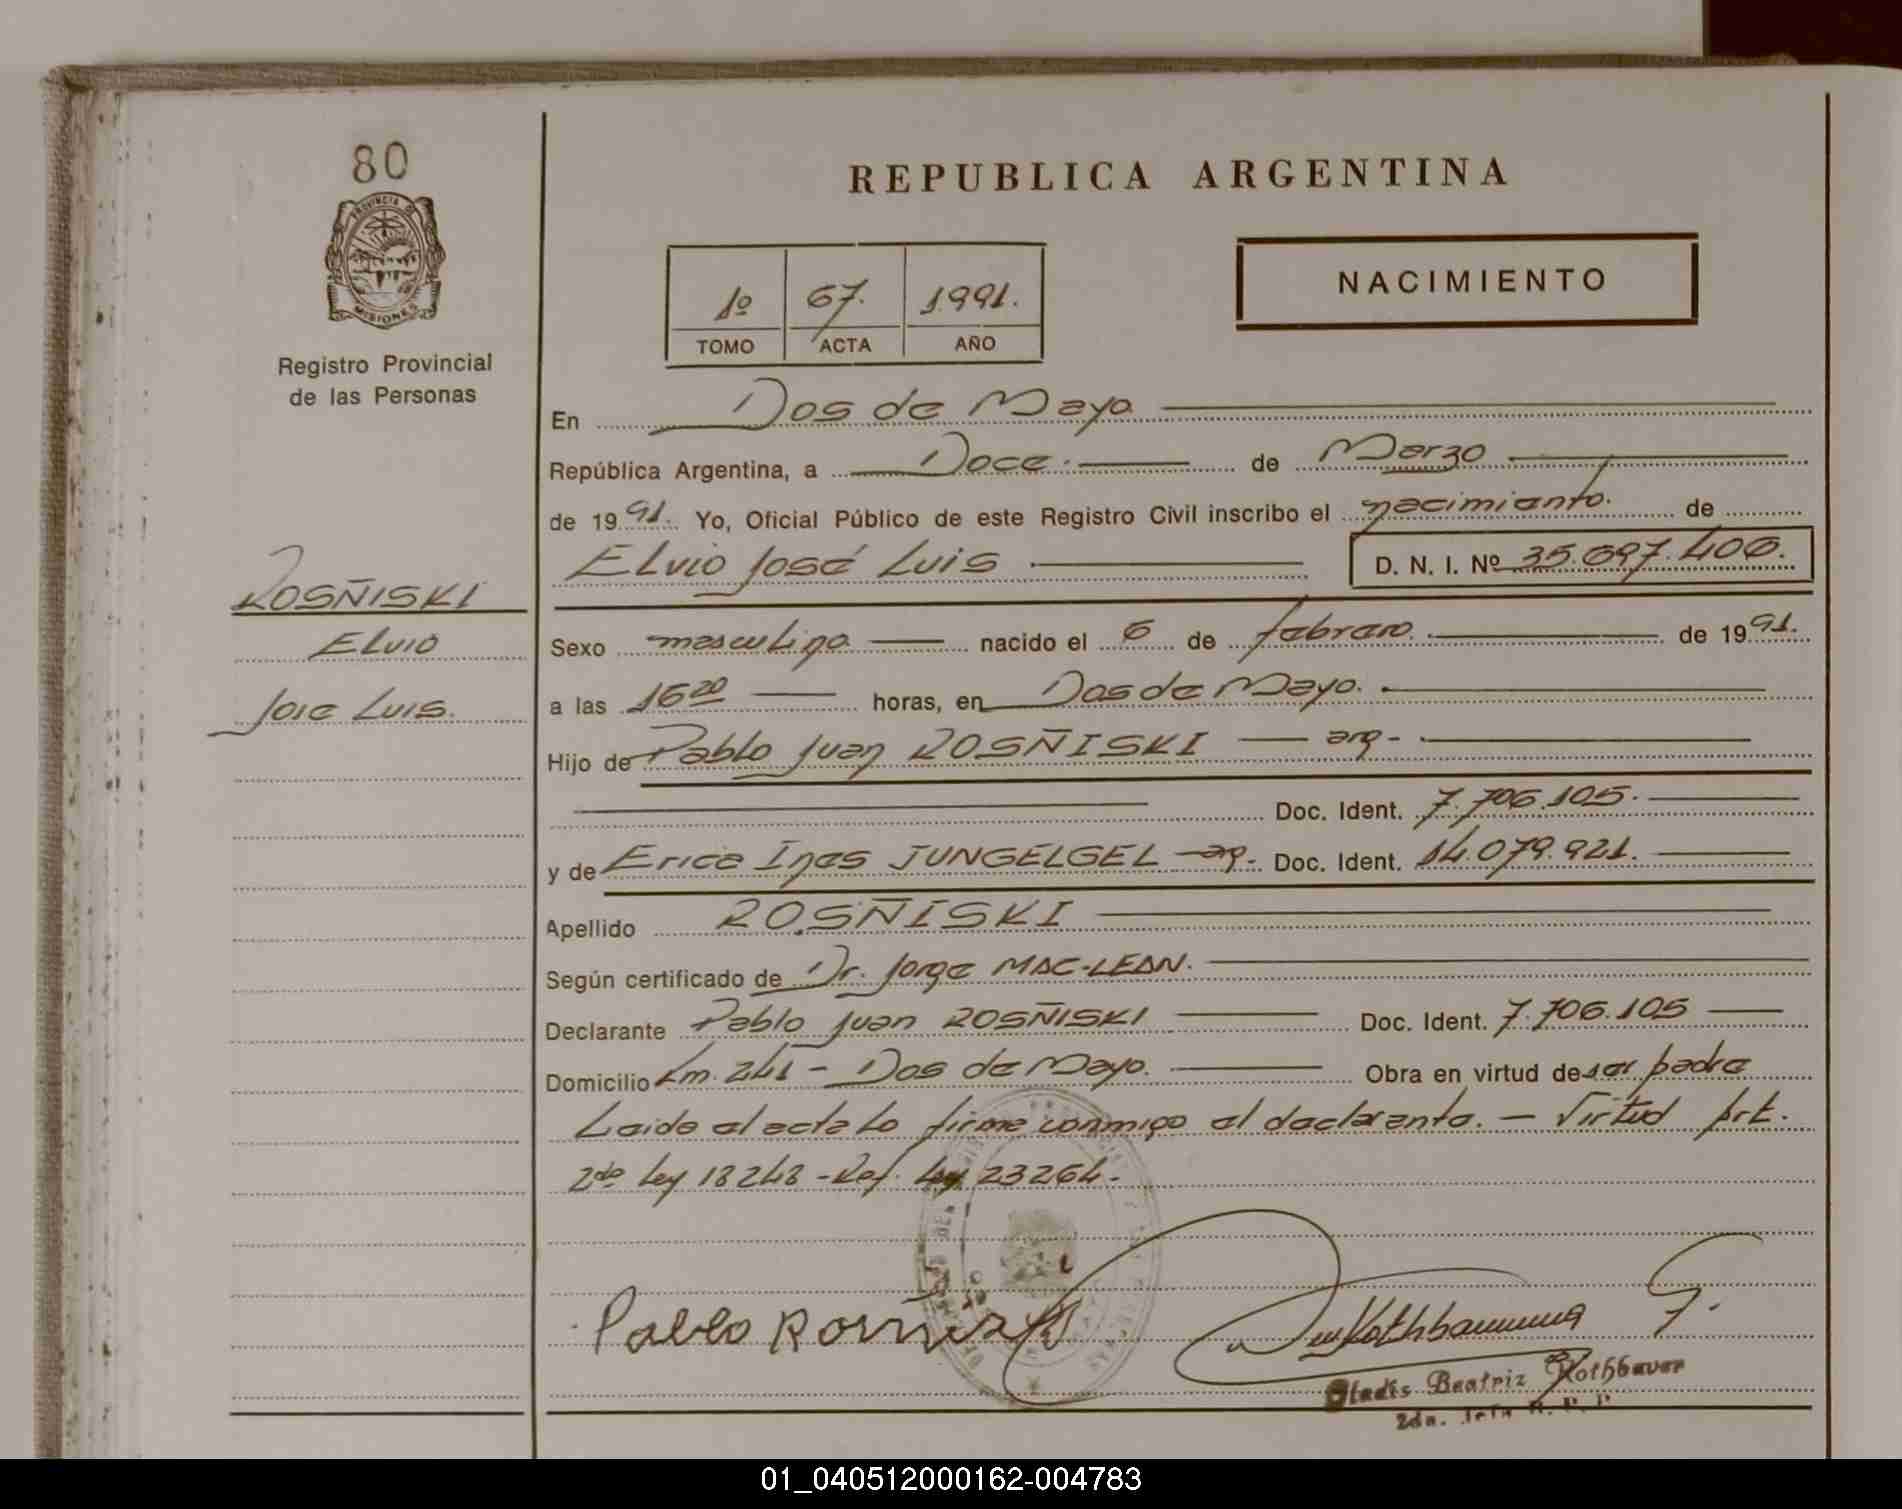 80
PROVINCIA DE
MISIONES
Registro Provincial
de las Personas
ROSÑISKI
Elvio
José Luis.
REPUBLICA ARGENTINA
1º 67. 1.991.
TOMO ACTA AÑO
NACIMIENTO
En Dos de Mayo
República Argentina, a Doce. de Marzo
de 1991. Yo, Oficial Público de este Registro Civil inscribo el nacimiento. de
Elvio José Luis D. N. I. Nº 35.697.406.
Sexo masculino nacido el 6 de febrero. de 1991.
a las 16 20 horas, en Dos de Mayo.
Hijo de Pablo Juan ROSÑISKI — arg-
Doc. Ident. 7.706.105.
y de Erica Ines JUNGELGEL arg. Doc. Ident. 14.079.921.
Apellido ROSÑISKI
Según certificado de Dr. Jorge MAC-LEAN.
Declarante Pablo Juan ROSÑISKI Doc. Ident. 7.706.105
Domicilio Km. 241 - Dos de Mayo. Obra en virtud de ser padre
Leida el acta la firma conmigo el declarante. — Virtud Art.
2do Ley 18248 - Ref. Ley 23264.-
Pablo Rosñiski
Rothbauer G.
Gladis Beatriz Rothbauer
2da. Jefa R. P. P.
01_040512000162-004783